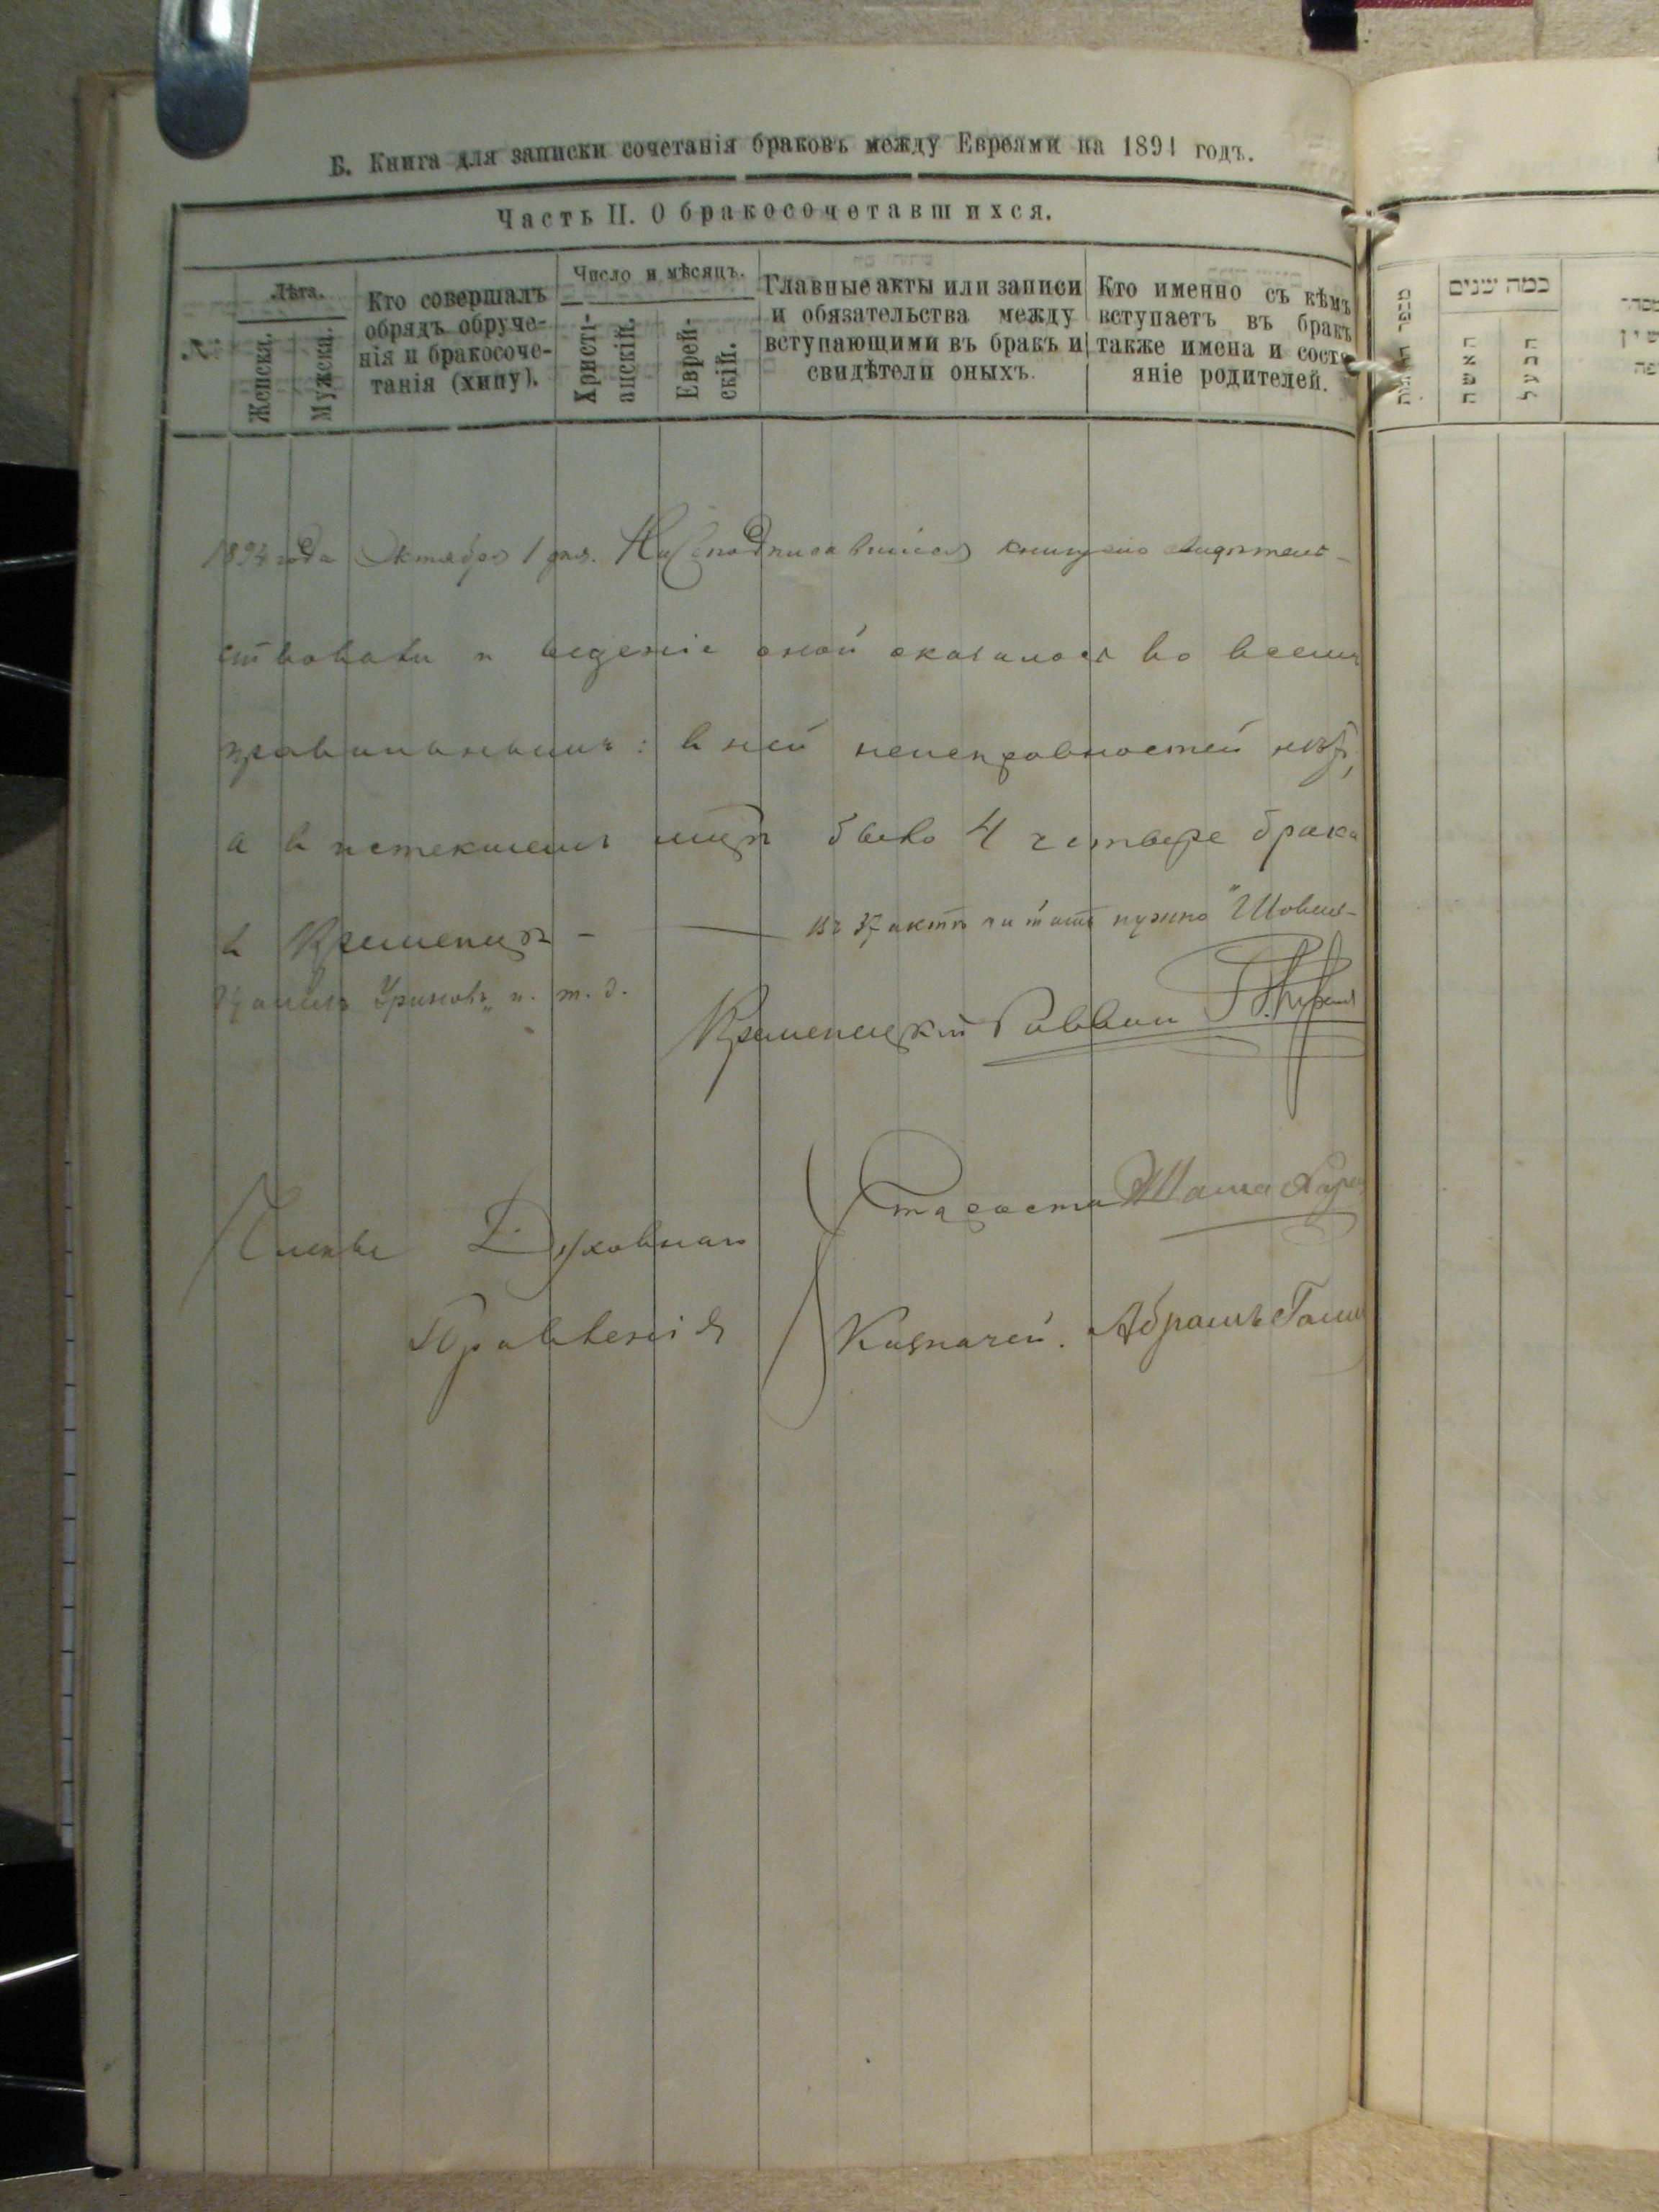 Б. Книга для записки сочетанія браковъ между Евреями на 1894 годъ.
Часть II. О бракосочетавшихся.
Лѣта.
Женска.
Мужска.
Кто совершалъ
обрядъ обруче-
нія и бракосоче-
танія (хипу).
Число и мѣсяцъ.
Христі-
анскій.
Еврей-
скій.
Главные акты или записи
и обязательства между
вступающими въ бракъ и
свидѣтели оныхъ.
Кто именно съ кѣмъ
вступаетъ въ бракъ
также имена и состо
яніе родителей.
כמה שנים
האשה
הבעל
1894 года Октября 1 дня. Нижеподписавшіеся книгу сію свидѣтель-
ствовали и веденіе оной оказалось во всемъ
правильнымъ: в ней неисправностей нѣт,
а в истекшемъ м-цѣ было 4 четыре брака
в Кременцѣ —
въ 37 актѣ читать нужно "Шовель-
Уриновъ" и. т. д.
Кременецкій Раввин
Члены Духовнаго
Правленія
Староста
Казначей. Абрамъ